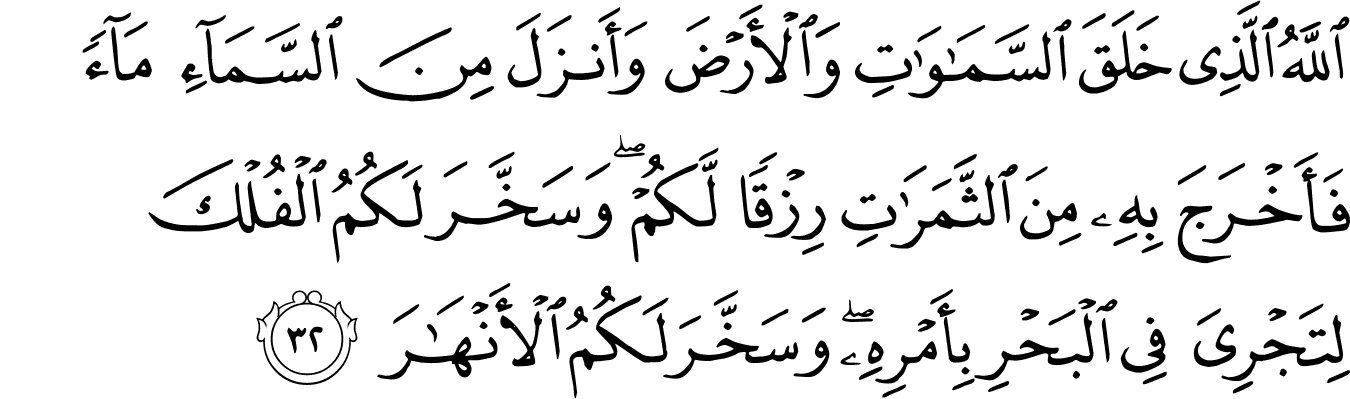 ٱللَّهُ ٱلَّذِى خَلَقَ ٱلسَّمَـٰوَٰتِ وَٱلْأَرْضَ وَأَنزَلَ مِنَ ٱلسَّمَآءِ مَآءً
فَأَخْرَجَ بِهِۦ مِنَ ٱلثَّمَرَٰتِ رِزْقًا لَّكُمْ ۖ وَسَخَّرَ لَكُمُ ٱلْفُلْكَ
لِتَجْرِىَ فِى ٱلْبَحْرِ بِأَمْرِهِۦ ۖ وَسَخَّرَ لَكُمُ ٱلْأَنْهَـٰرَ ٣٢